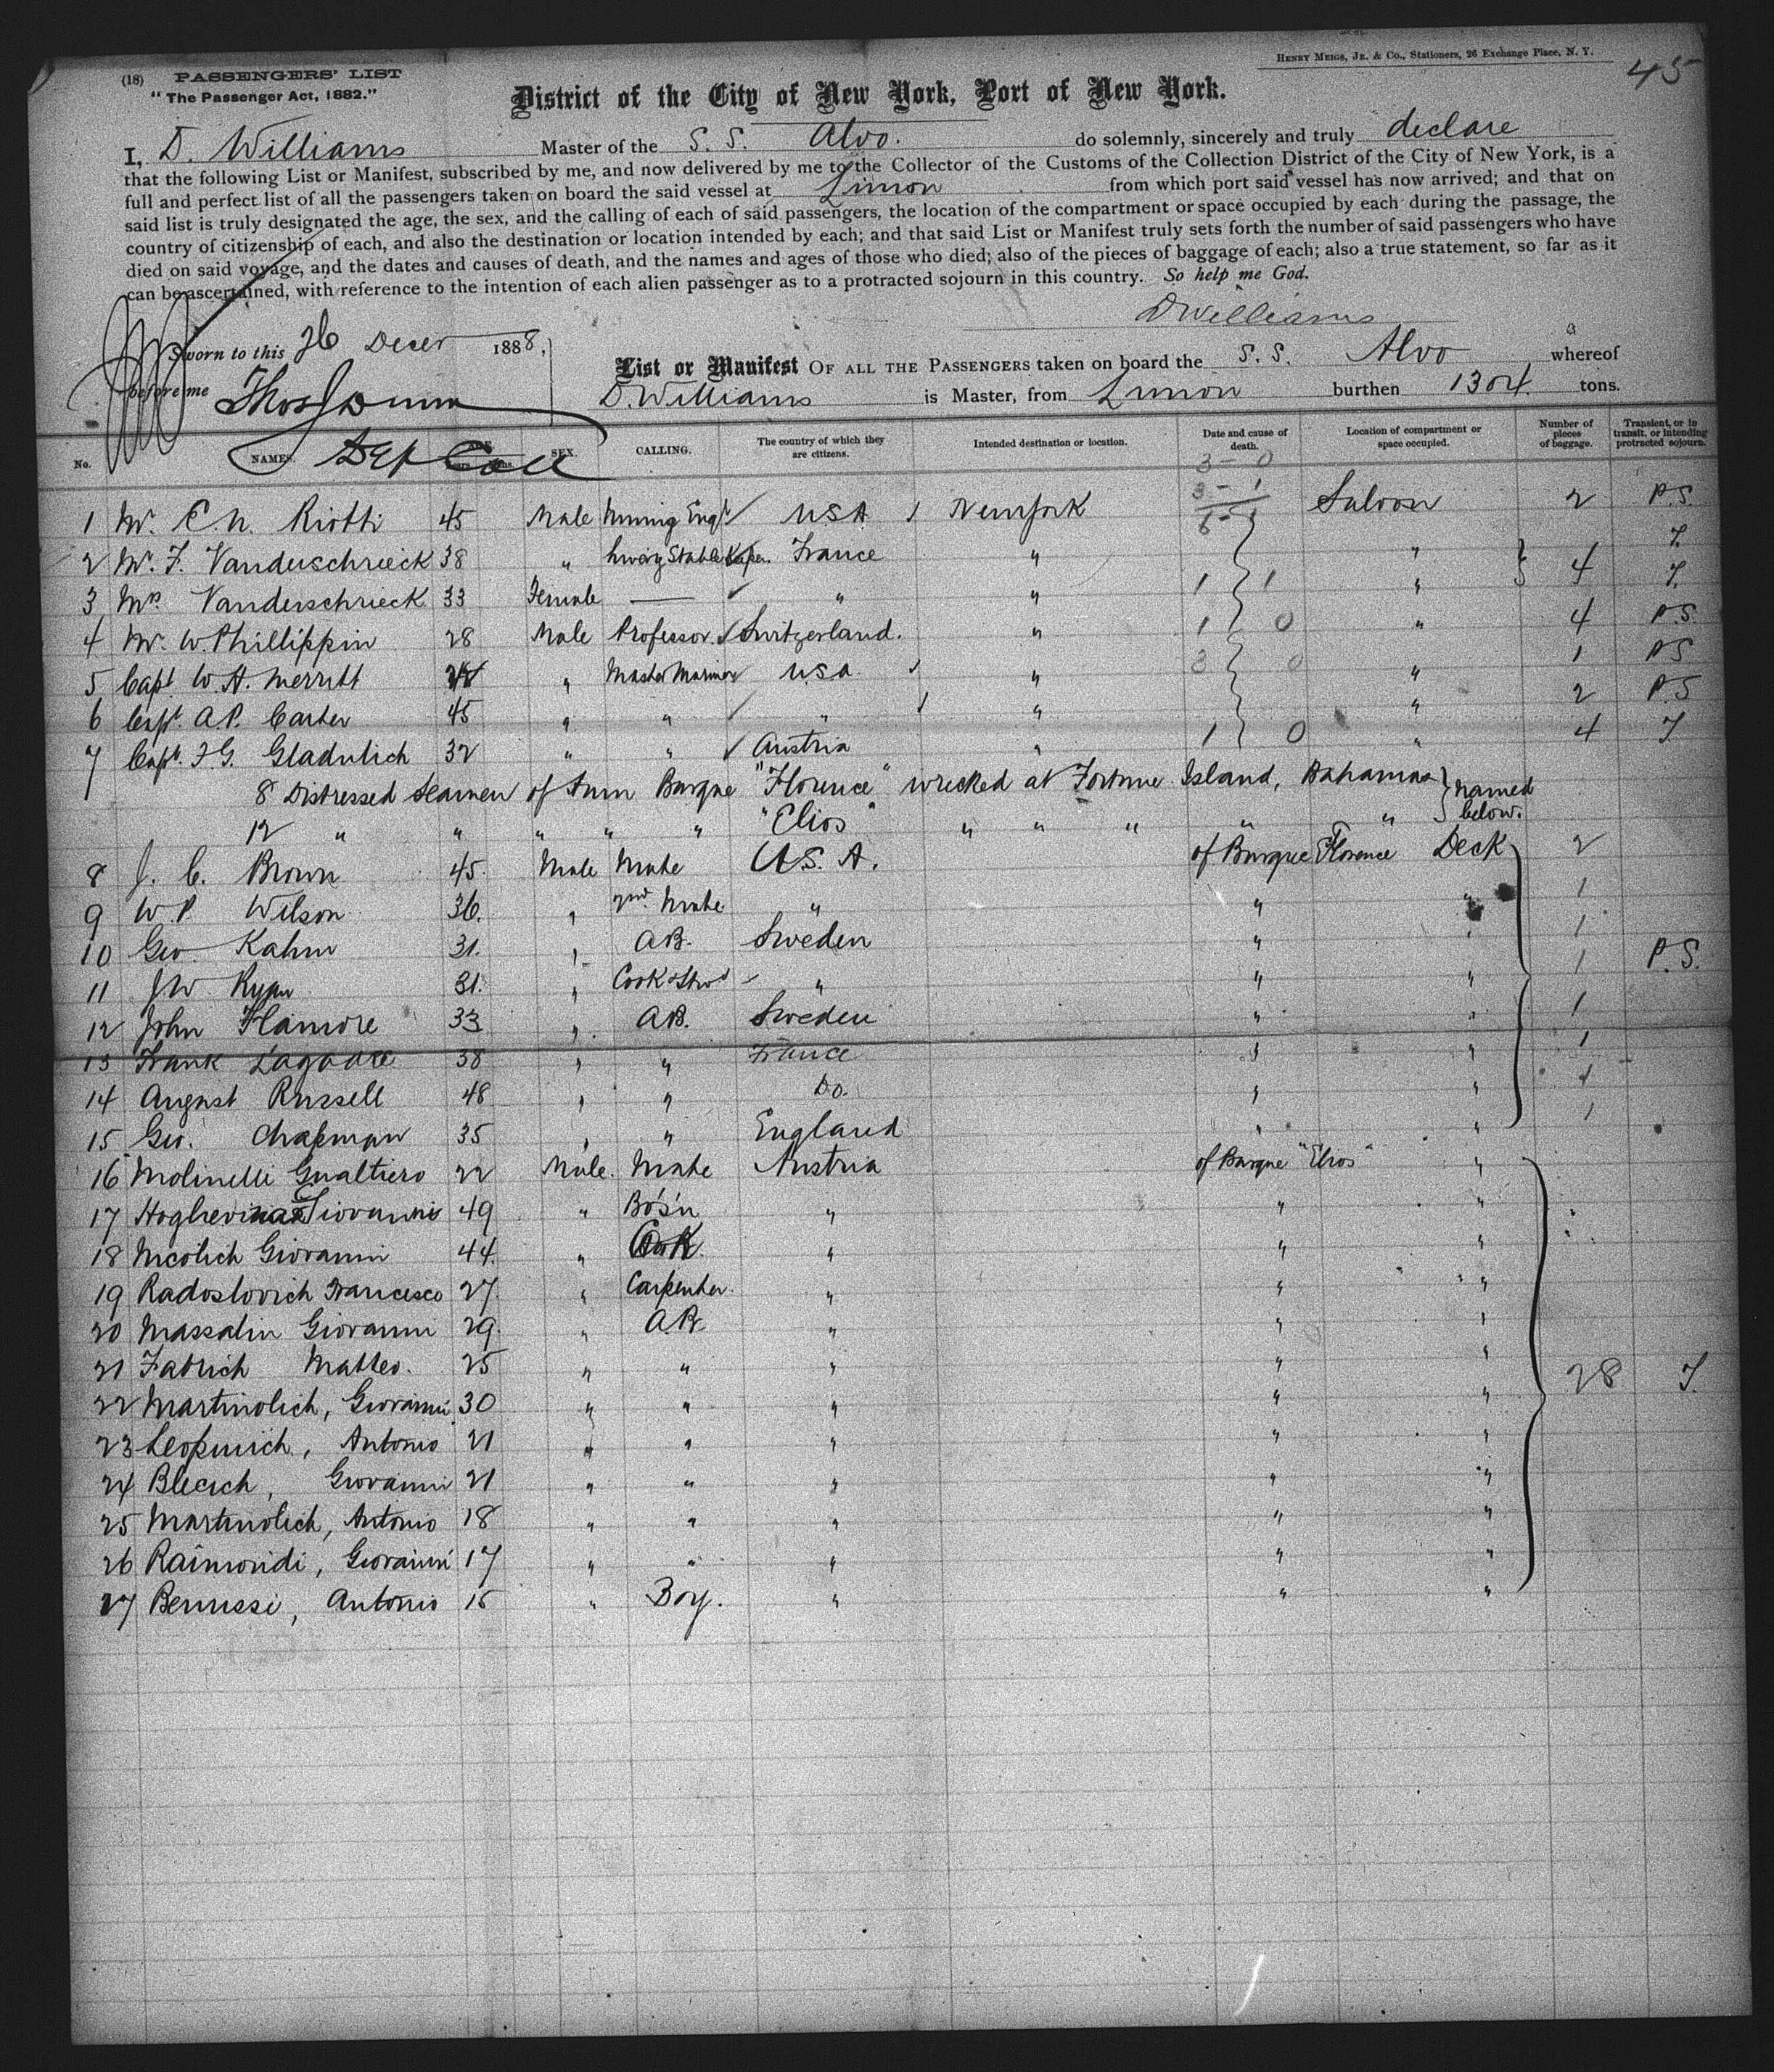 HENRY MEIGS, JR. & CO., Stationers, 26 Exchange Place, N. Y.
45
(18) PASSENGERS' LIST
"The Passenger Act, 1882."
District of the City of New York, Port of New York.
I, D. Williams Master of the S. S. Alvo. do solemnly, sincerely and truly declare
that the following List or Manifest, subscribed by me, and now delivered by me to the Collector of the Customs of the Collection District of the City of New York, is a
full and perfect list of all the passengers taken on board the said vessel at Limon from which port said vessel has now arrived; and that on
said list is truly designated the age, the sex, and the calling of each of said passengers, the location of the compartment or space occupied by each during the passage, the
country of citizenship of each, and also the destination or location intended by each; and that said List or Manifest truly sets forth the number of said passengers who have
died on said voyage, and the dates and causes of death, and the names and ages of those who died; also of the pieces of baggage of each; also a true statement, so far as it
can be ascertained, with reference to the intention of each alien passenger as to a protracted sojourn in this country. So help me God.
DWilliams
Sworn to this 26 Decer 1888,
before me Thos J Dunn
Dep Coll
List or Manifest OF ALL THE PASSENGERS taken on board the S. S. Alvo whereof
D. Williams is Master, from Limon burthen 1304 tons.
No. NAMES. AGE. SEX. CALLING. The country of which they are citizens. Intended destination or location. Date and cause of death. Location of compartment or space occupied. Number of pieces of baggage. Transient, or in transit, or intending protracted sojourn.
3 - 0
3 - 1
6 - 1
1 Mr. E. N. Riotti 45 Male Mining Engr USA New York Saloon 2 P.S.
2 Mr. F. Vanderschrieck 38 " Livery Stable Keeper. France " " 4 T.
3 Mrs. Vanderschrieck 33 Female — " " 1 1 " T.
4 Mr. W. Phillippin 28 Male Professor. Switzerland. " 1 0 " 4 P.S.
5 Capt. W. A. Merritt " Master Mariner USA " 3 0 " 1 P.S
6 Capt. A. P. Carter 45 " " " " " 2 P.S
7 Capt. F. G. Gladulich 32 " " Austria " 1 0 " 4 T.
8 Distressed Seamen of Amn Barque "Florence" wrecked at Fortune Island, Bahamas } named
12 " " " " " "Elios" " " " " " below.
8 J. C. Brown 45. Male Mate U.S. A. of Barque Florence Deck 2
9 W. P. Wilson 36. " 2nd Mate " " " 1
10 Geo. Kahm 31. " A.B. Sweden " " 1
11 J W Ryan 31. " Cook & Stwd " " " 1 P.S.
12 John Flamore 33 " A.B. Sweden " " 1
13 Frank Lagoare 38 " " France " " 1
14 August Russell 48 " " Do. " " 1
15 Geo. Chapman 35 " " England " " 1
16 Molinelli Gualtiero 22 Male. Mate Austria of Barque "Elios" "
17 Giovanni 49 " Bo's'n " " "
18 Nicolich Giovanni 44. " Cook. " " "
19 Radoslovich Francesco 27. " Carpenter. " " "
20 Massalin Giovanni 29. " A.B. " " "
21 Fabrich Matteo. 25 " " " " " 28 T.
22 Martinolich, Giovanni 30 " " " " "
23 Leopinich, Antonio 21 " " " " "
24 Blecich, Giovanni 21 " " " " "
25 Martinolich, Antonio 18 " " " " "
26 Raimondi, Giovanni 17 " " " " "
27 Benussi, Antonio 15 " Boy. " " "